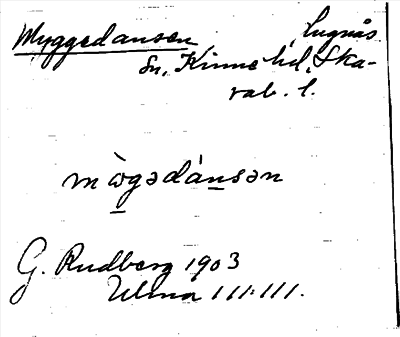 Myggedansen, Lugnås
sn, Kinne hd, Ska-
rab. l.
m ὼgədánsən
G. Rudberg 1903
Ulma 111:111.